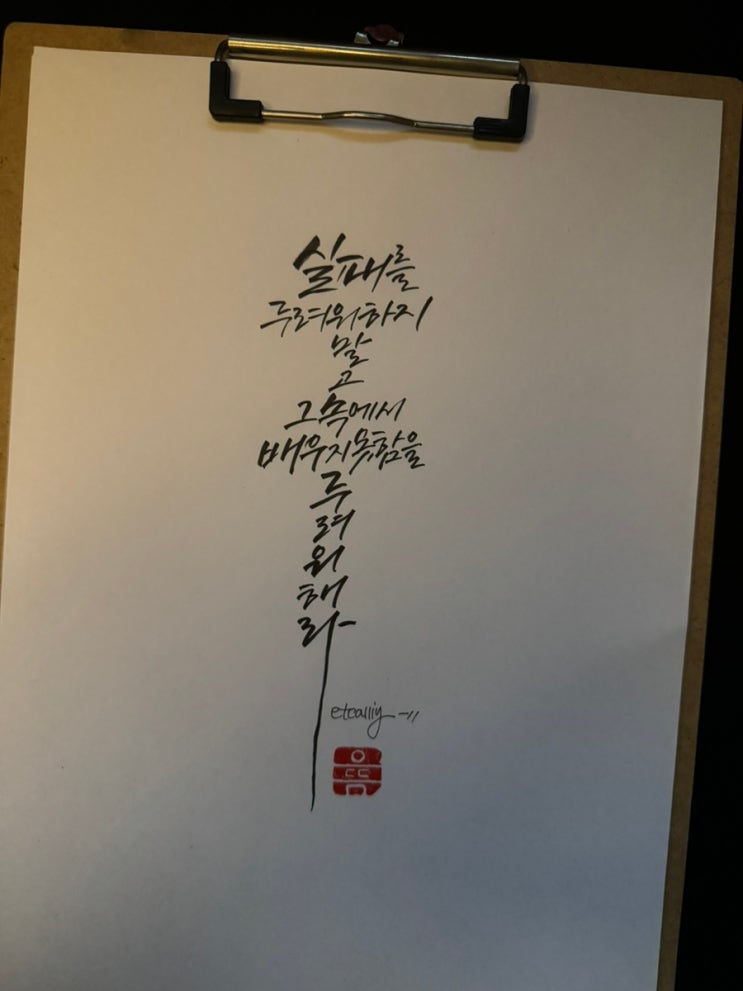 실패를
두려워하지
말
고
그 속에서
배우지 못함을
두
려
워
해
라
etcalliy